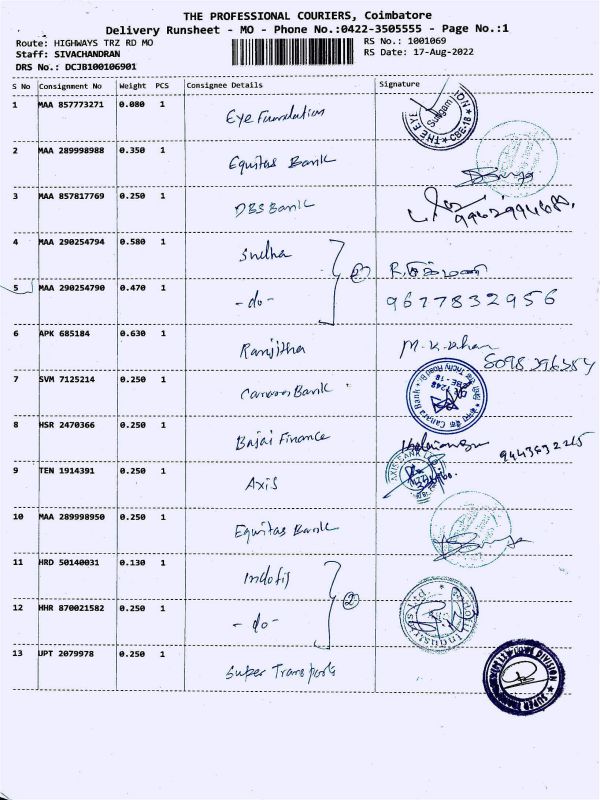 THE PROFESSIONAL COURIERS, Coimbatore
Delivery Runsheet - MO - Phone No.:0422-3505555 - Page No.:1
Route: HIGHWAYS TRZ RD MO
RS No.: 1001069
Staff: SIVACHANDRAN
RS Date: 17-Aug-2022
DRS No.: DCJB100106901
S No Consignment No Weight PCS Consignee Details Signature
1 MAA 857773271 0.080 1 Eye Foundation
THE EYE CBE-18
2 MAA 289998988 0.350 1 Equitas Bank
3 MAA 857817769 0.250 1 DBS Bank
4 MAA 290254794 0.580 1 Sudha
2
5 MAA 290254790 0.470 1 -do- 9677832956
6 APK 685184 0.630 1 Ranjitha
7 SVM 7125214 0.250 1 Canara Bank
Canara Bank
8 HSR 2470366 0.250 1 Bajaj Finance
9 TEN 1914391 0.250 1 Axis
AXIS BANK
10 MAA 289998950 0.250 1 Equitas Bank
11 HRD 50140031 0.130 1 Indofil
2
12 HHR 870021582 0.250 1 -do-
13 UPT 2079978 0.250 1 Super Transports
SUPER DIVISION